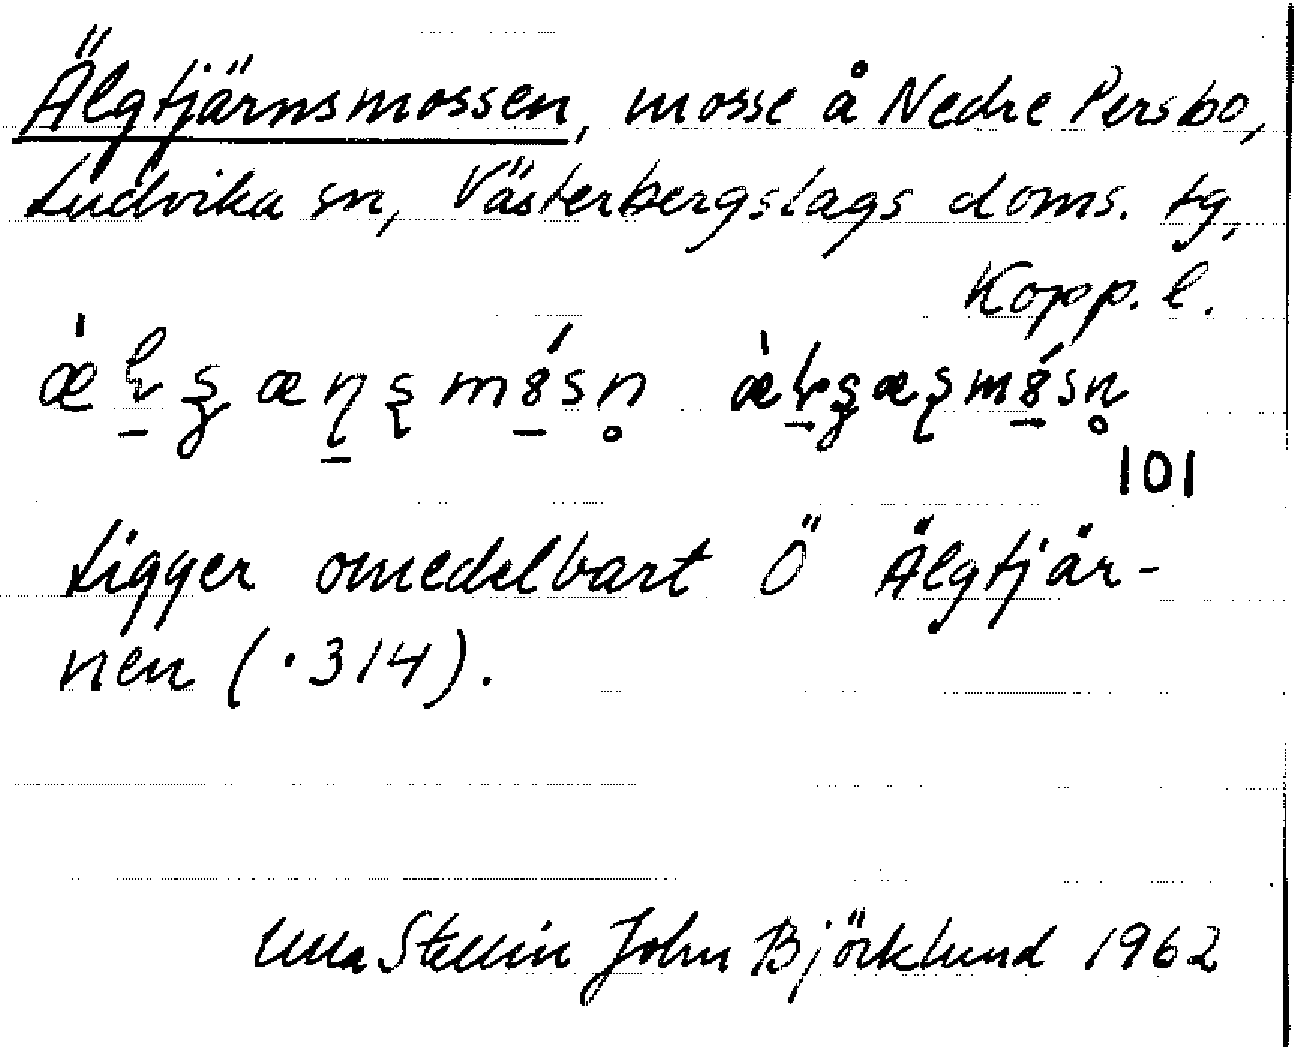 Älgtjärnsmossen, mosse å Nedre Persbo,
Ludvika sn, Västerbergslags doms. tg,
Kopp. l.
101
Ligger omedelbart Ö Älgtjär-
nen (·314).
Ulla Stellin John Björklund 1962